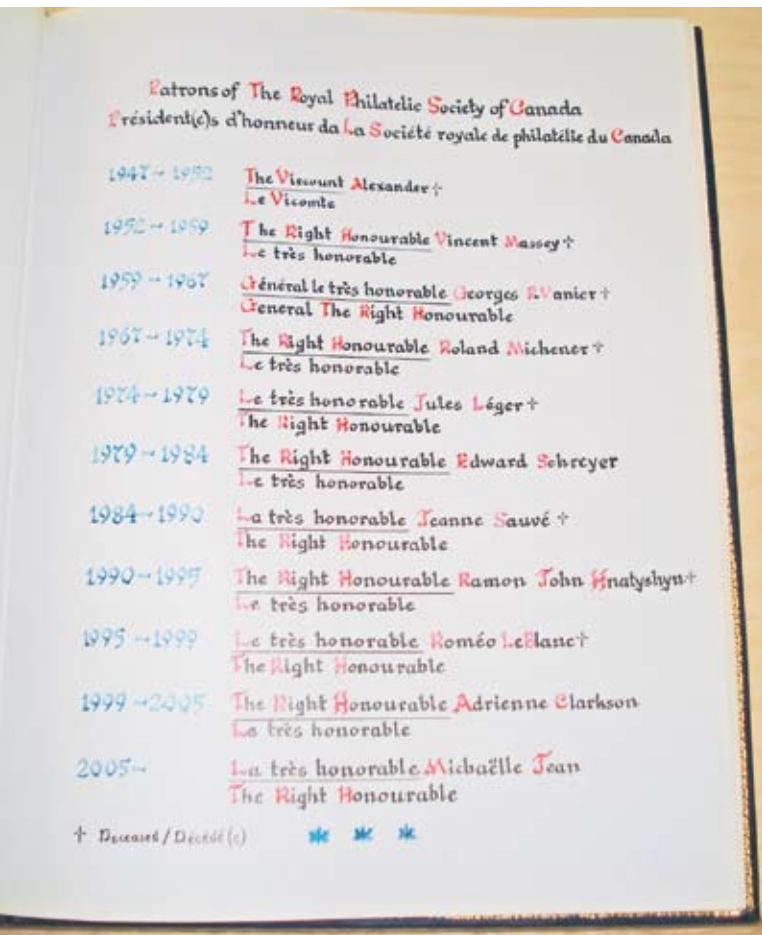 Patrons of The Royal Philatelic Society of Canada
Président(e)s d'honneur da La Société royale de philatélie du Canada
1947-1952 The Viscount Alexander†
Le Vicomte
1952-1959 The Right Honourable Vincent Massey†
Le très honorable
1959-1967 Général le très honorable Georges P. Vanier†
General The Right Honourable
1967-1974 The Right Honourable Roland Michener†
Le très honorable
1974-1979 Le très honorable Jules Léger†
The Right Honourable
1979-1984 The Right Honourable Edward Schreyer
Le très honorable
1984-1990 La très honorable Jeanne Sauvé†
The Right Honourable
1990-1995 The Right Honourable Ramon John Hnatyshyn†
Le très honorable
1995-1999 Le très honorable Roméo LeBlanc†
The Right Honourable
1999-2005 The Right Honourable Adrienne Clarkson
La très honorable
2005- La très honorable Michaëlle Jean
The Right Honourable
† Deceased/Décédé(e)